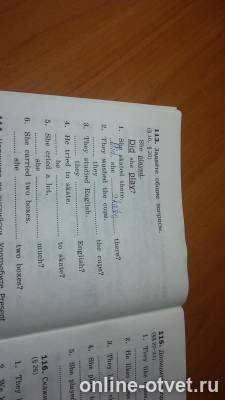 113. Задайте общие вопросы.
(§ 19, § 20)
She played.
Did she play?
1. She skated there.
Did she skate there?
2. They washed the cups.
they the cups?
3. They studied English.
they English?
4. He tried to skate.
he to skate?
5. She cried a lot.
she much?
6. She carried two boxes.
she two boxes?
115.
1. They like
2. He likes
3. They
4. She
5. She play
116.
(§ 26)
1. They
2. We
online-otvet.ru